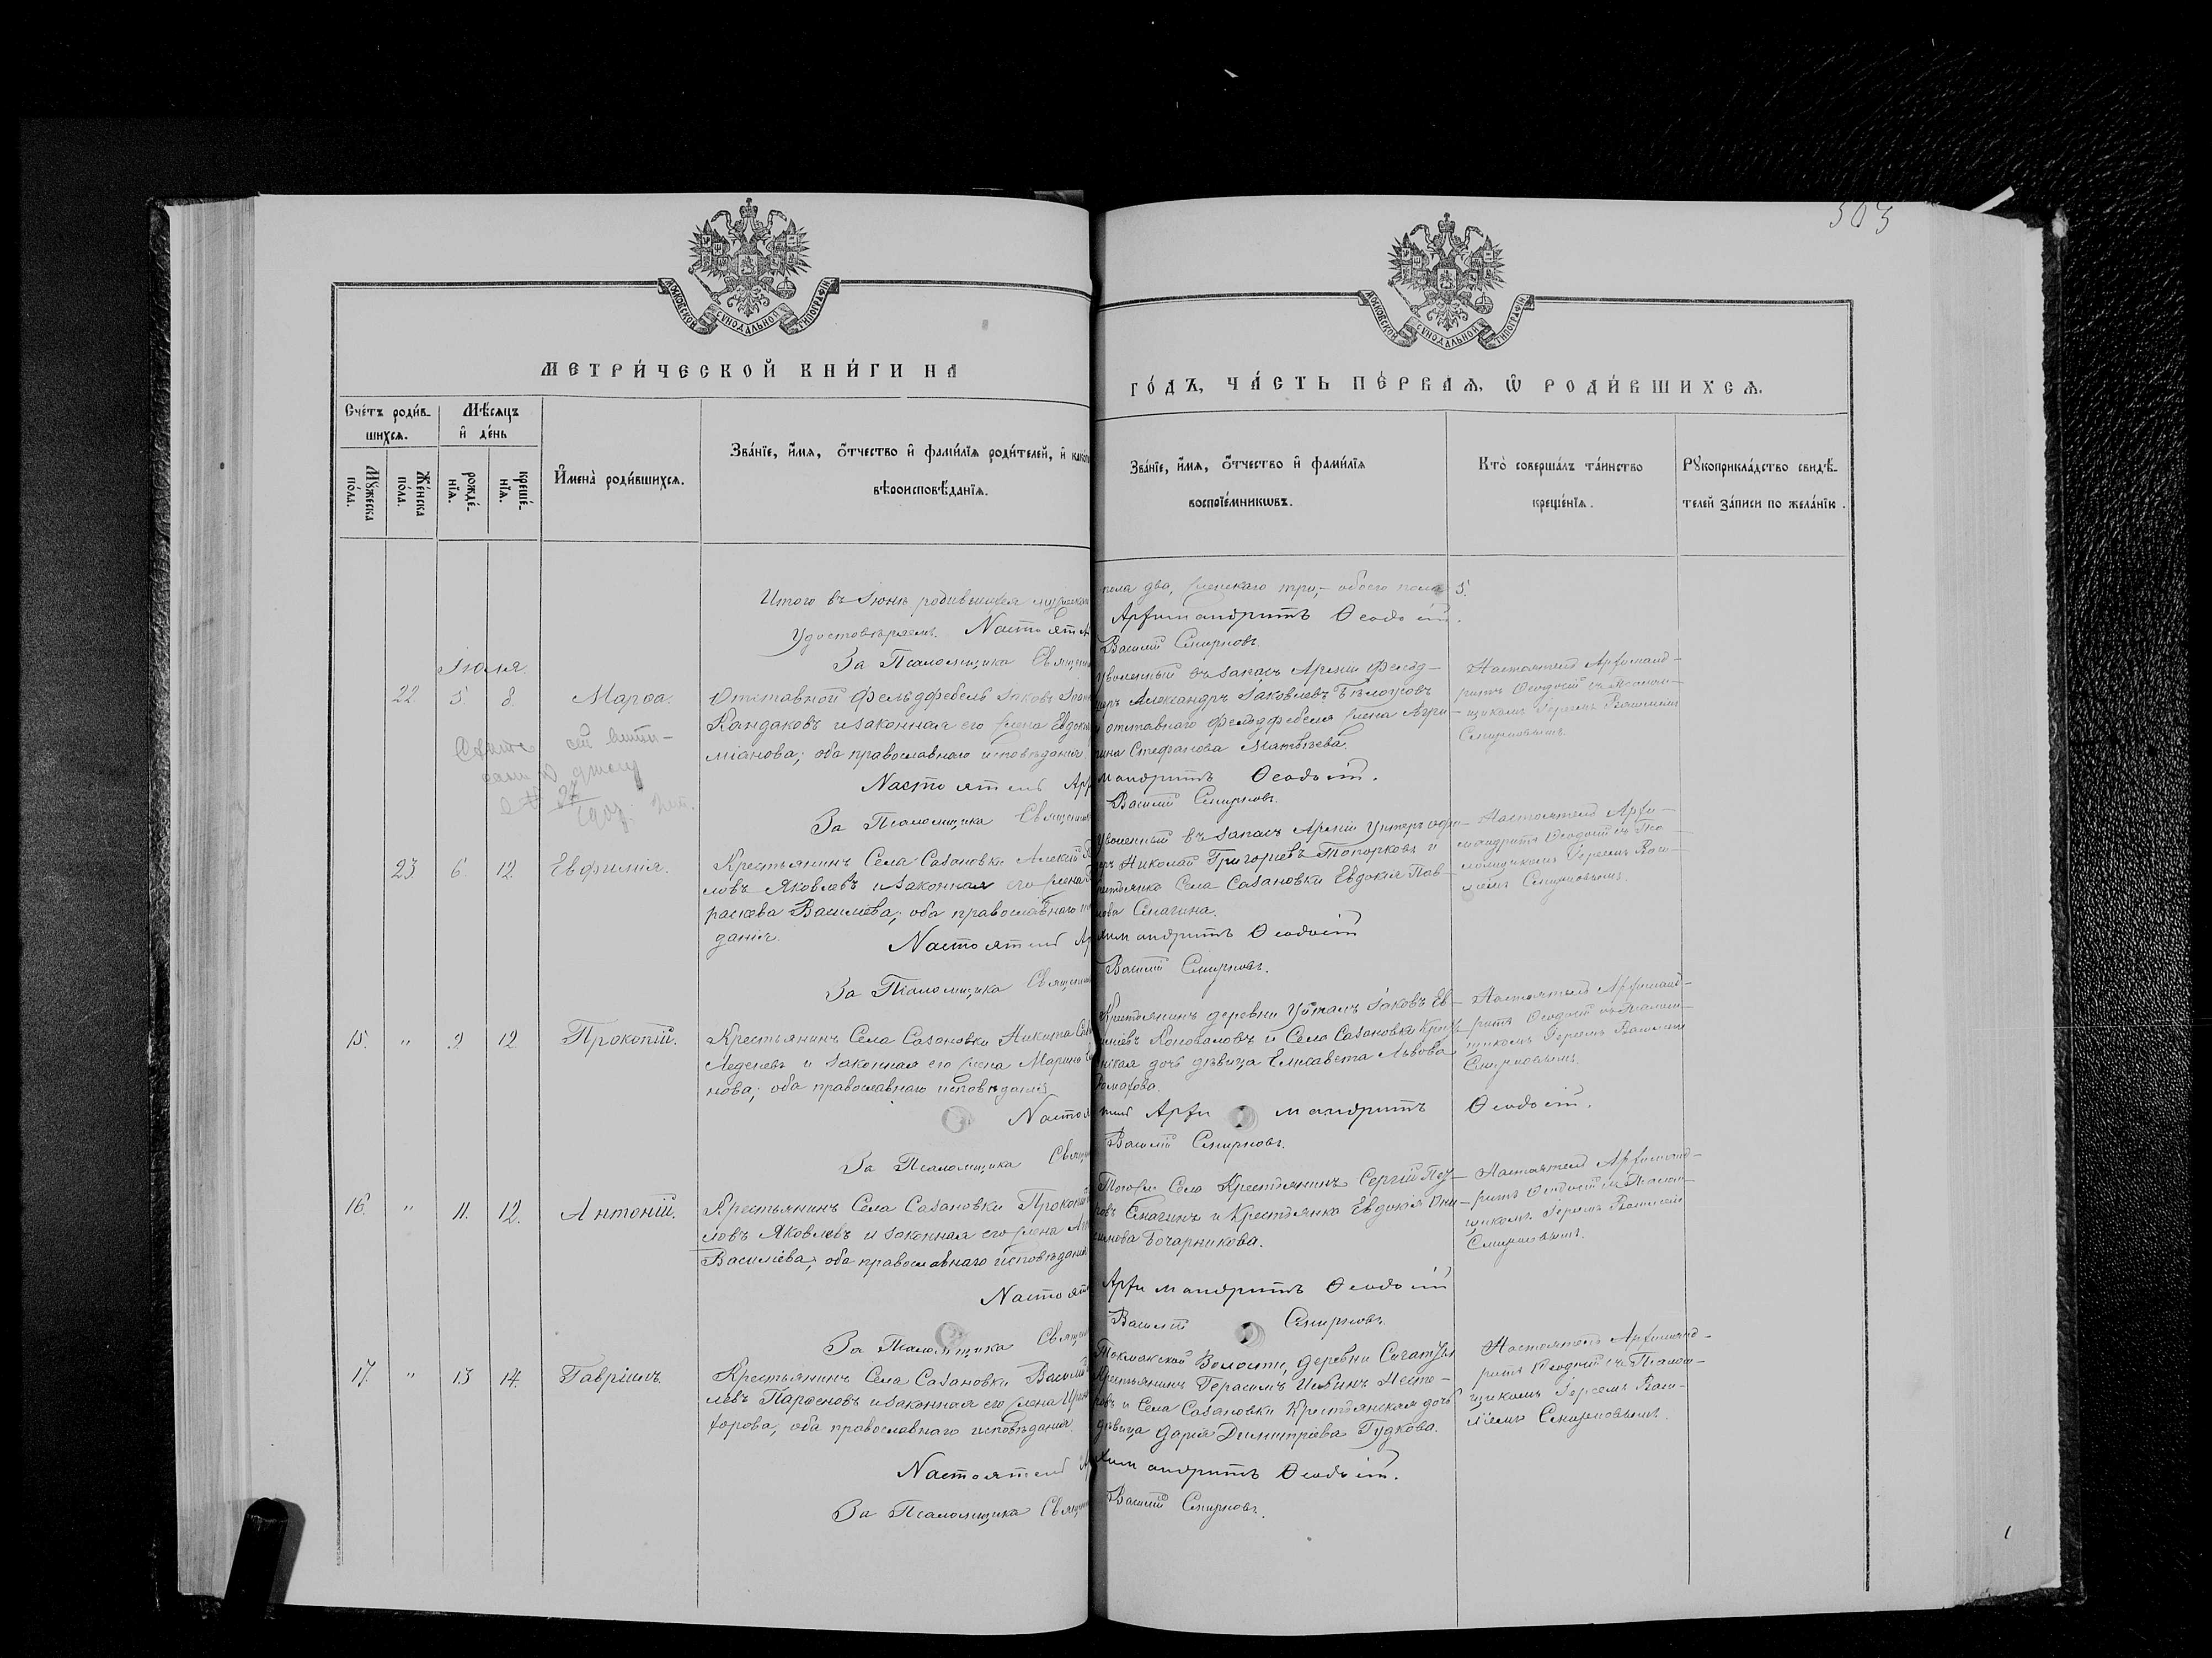 503
МОСКОВСКОЙ СѴНОДАЛЬНОЙ ТИПОГРАФІИ
МОСКОВСКОЙ СѴНОДАЛЬНОЙ ТИПОГРАФІИ
МЕТРИ́ЧЕСКОЙ КНИ́ГИ НА
ГО́ДЪ, ЧА́СТЬ ПЕ́РВАѦ, Ѿ РОДИ́ВШИХСѦ.
Сче́тъ роди́в-
шихсѧ.
Мѣ́сѧцъ
и҆ де́нь
Мꙋ́жеска по́ла.
Же́нска по́ла.
рожде́-нїѧ.
креще́-нїѧ.
И҆мена̀ роди́вшихсѧ.
Зва́нїе, и҆́мѧ, ѻ҆́тчество и҆ фами́лїѧ роди́телей, и҆ како
вѣроисповѣ́данїѧ.
Зва́нїе, и҆́мѧ, ѻ҆́тчество и҆ фами́лїѧ
воспрїе́мникѡвъ.
Кто̀ соверша́лъ та́инство
креще́нїѧ.
Рꙋкоприкла́дство свидѣ́-
телей за́писи по жела́нїю.
Итого въ Іюнѣ родившихся мужеска
пола два, женскаго три, – обоего пола 5.
Удостовѣряемъ. Настоят
Архимандритъ Ѳеодосій.
За Псаломщика Священ
Василій Смирновъ.
Іюля.
22. 5. 8. Марѳа.
Отставной Фельдфебель Іаковъ Іоан
Кандаковъ и законная его жена Евдок
міанова; оба православнаго исповѣданія
Уволенный въ запасъ Арміи Фельд-
Александръ Іаковлевъ Бѣлоусовъ
и отставнаго Фельдфебеля жена Агри-
пина Стефанова Матвѣева.
Настоятель Архиманд-
ритъ Ѳеодосій съ Псалом-
щикомъ Іереемъ Василіемъ
Смирновымъ.
Настоятель Арх
мандритъ Ѳеодосій.
За Псаломщика Священ
Василій Смирновъ.
23. 6. 12. Евфимія.
Крестьянинъ Села Сазановки Алексій
ловъ Яковлевъ и законная его жена
раскева Василіева; оба православнаго
данія.
Уволенный въ запасъ Арміи Унтеръ офи-
церъ Николай Григорьевъ Топорковъ и
крестьянка Села Сазановки Евдокія Пав-
лова Снагина.
Настоятель Архи-
мандритъ Ѳеодосій съ Пса-
ломщикомъ Іереемъ Васи-
ліемъ Смирновымъ.
Настоятель Ар
химандритъ Ѳеодосій
За Псаломщика Священ
Василій Смирновъ.
15. " 9 12 Прокопій.
Крестьянинъ Села Сазановки Никита
Леденевъ и законная его жена Марина
нова; оба православнаго исповѣданія
Крестьянинъ деревни Уйталъ Іаковъ Ев-
Коноваловъ и Села Сазановки Кресть-
янская дочь дѣвица Елисавета Львова
Домахова.
Настоятель Архиманд-
ритъ Ѳеодосій съ Псалом-
щикомъ Іереемъ Василіемъ
Смирновымъ.
Настоя
тель Архимандритъ Ѳеодосій.
За Псаломщика Свящ
Василій Смирновъ.
16. " 11. 12. Антоній.
Крестьянинъ Села Сазановки Прокопій
ловъ Яковлевъ и законная его жена
Василіева; оба православнаго исповѣданія
Того же Села Крестьянинъ Сергій Пет-
ровъ Снагинъ и Крестьянка Евдокія Они-
симова Бочарникова.
Настоятель Архиманд-
ритъ Ѳеодосій съ Псалом-
щикомъ Іереемъ Василіемъ
Смирновымъ.
Настоят
Архимандритъ Ѳеодосій
За Псаломщика Священ
Василій Смирновъ.
17. " 13 14. Гавріилъ.
Крестьянинъ Села Сазановки Василій
левъ Парѳеновъ и законная его жена Ирин
форова; оба православнаго исповѣданія.
Токмакской Волости, деревни
Крестьянинъ Герасимъ Ильинъ Несте-
ровъ и Села Сазановки Крестьянская дочь
дѣвица Дарія Димитріева Гудкова.
Настоятель Архиманд-
ритъ Ѳеодосій съ Псалом-
щикомъ Іереемъ Васи-
ліемъ Смирновымъ.
Настоятель А
химандритъ Ѳеодосій.
За Псаломщика Священ
Василій Смирновъ.